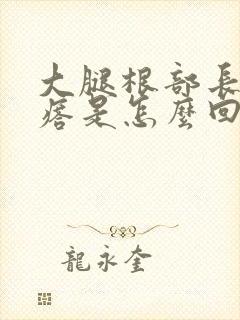 大腿根部長
痞是怎麼回
龍永奎